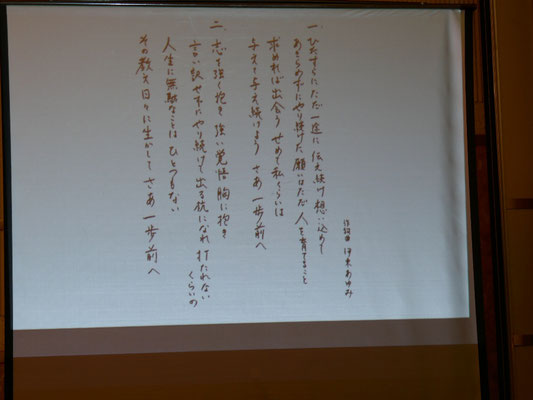 作詞曲 伊東あゆみ
一、ひたすらにただ一途に 伝え続け 想い込めて
あきらめずにやり続けた 願いはただ 人を育てること
求めれば出会う せめて私くらいは
与えて与え続けよう さあ 一歩前へ
二、志を強く抱き 強い覚悟 胸に抱き
言い訳せずにやり続けて 出る杭になれ 打たれないくらいの
人生に無駄なことは ひとつもない
その教え日々に生かして さあ 一歩前へ